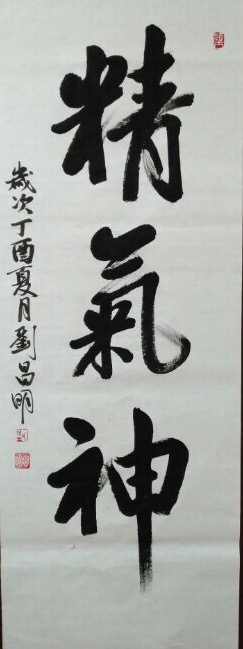 精氣神
歲次丁酉夏月劉昌明